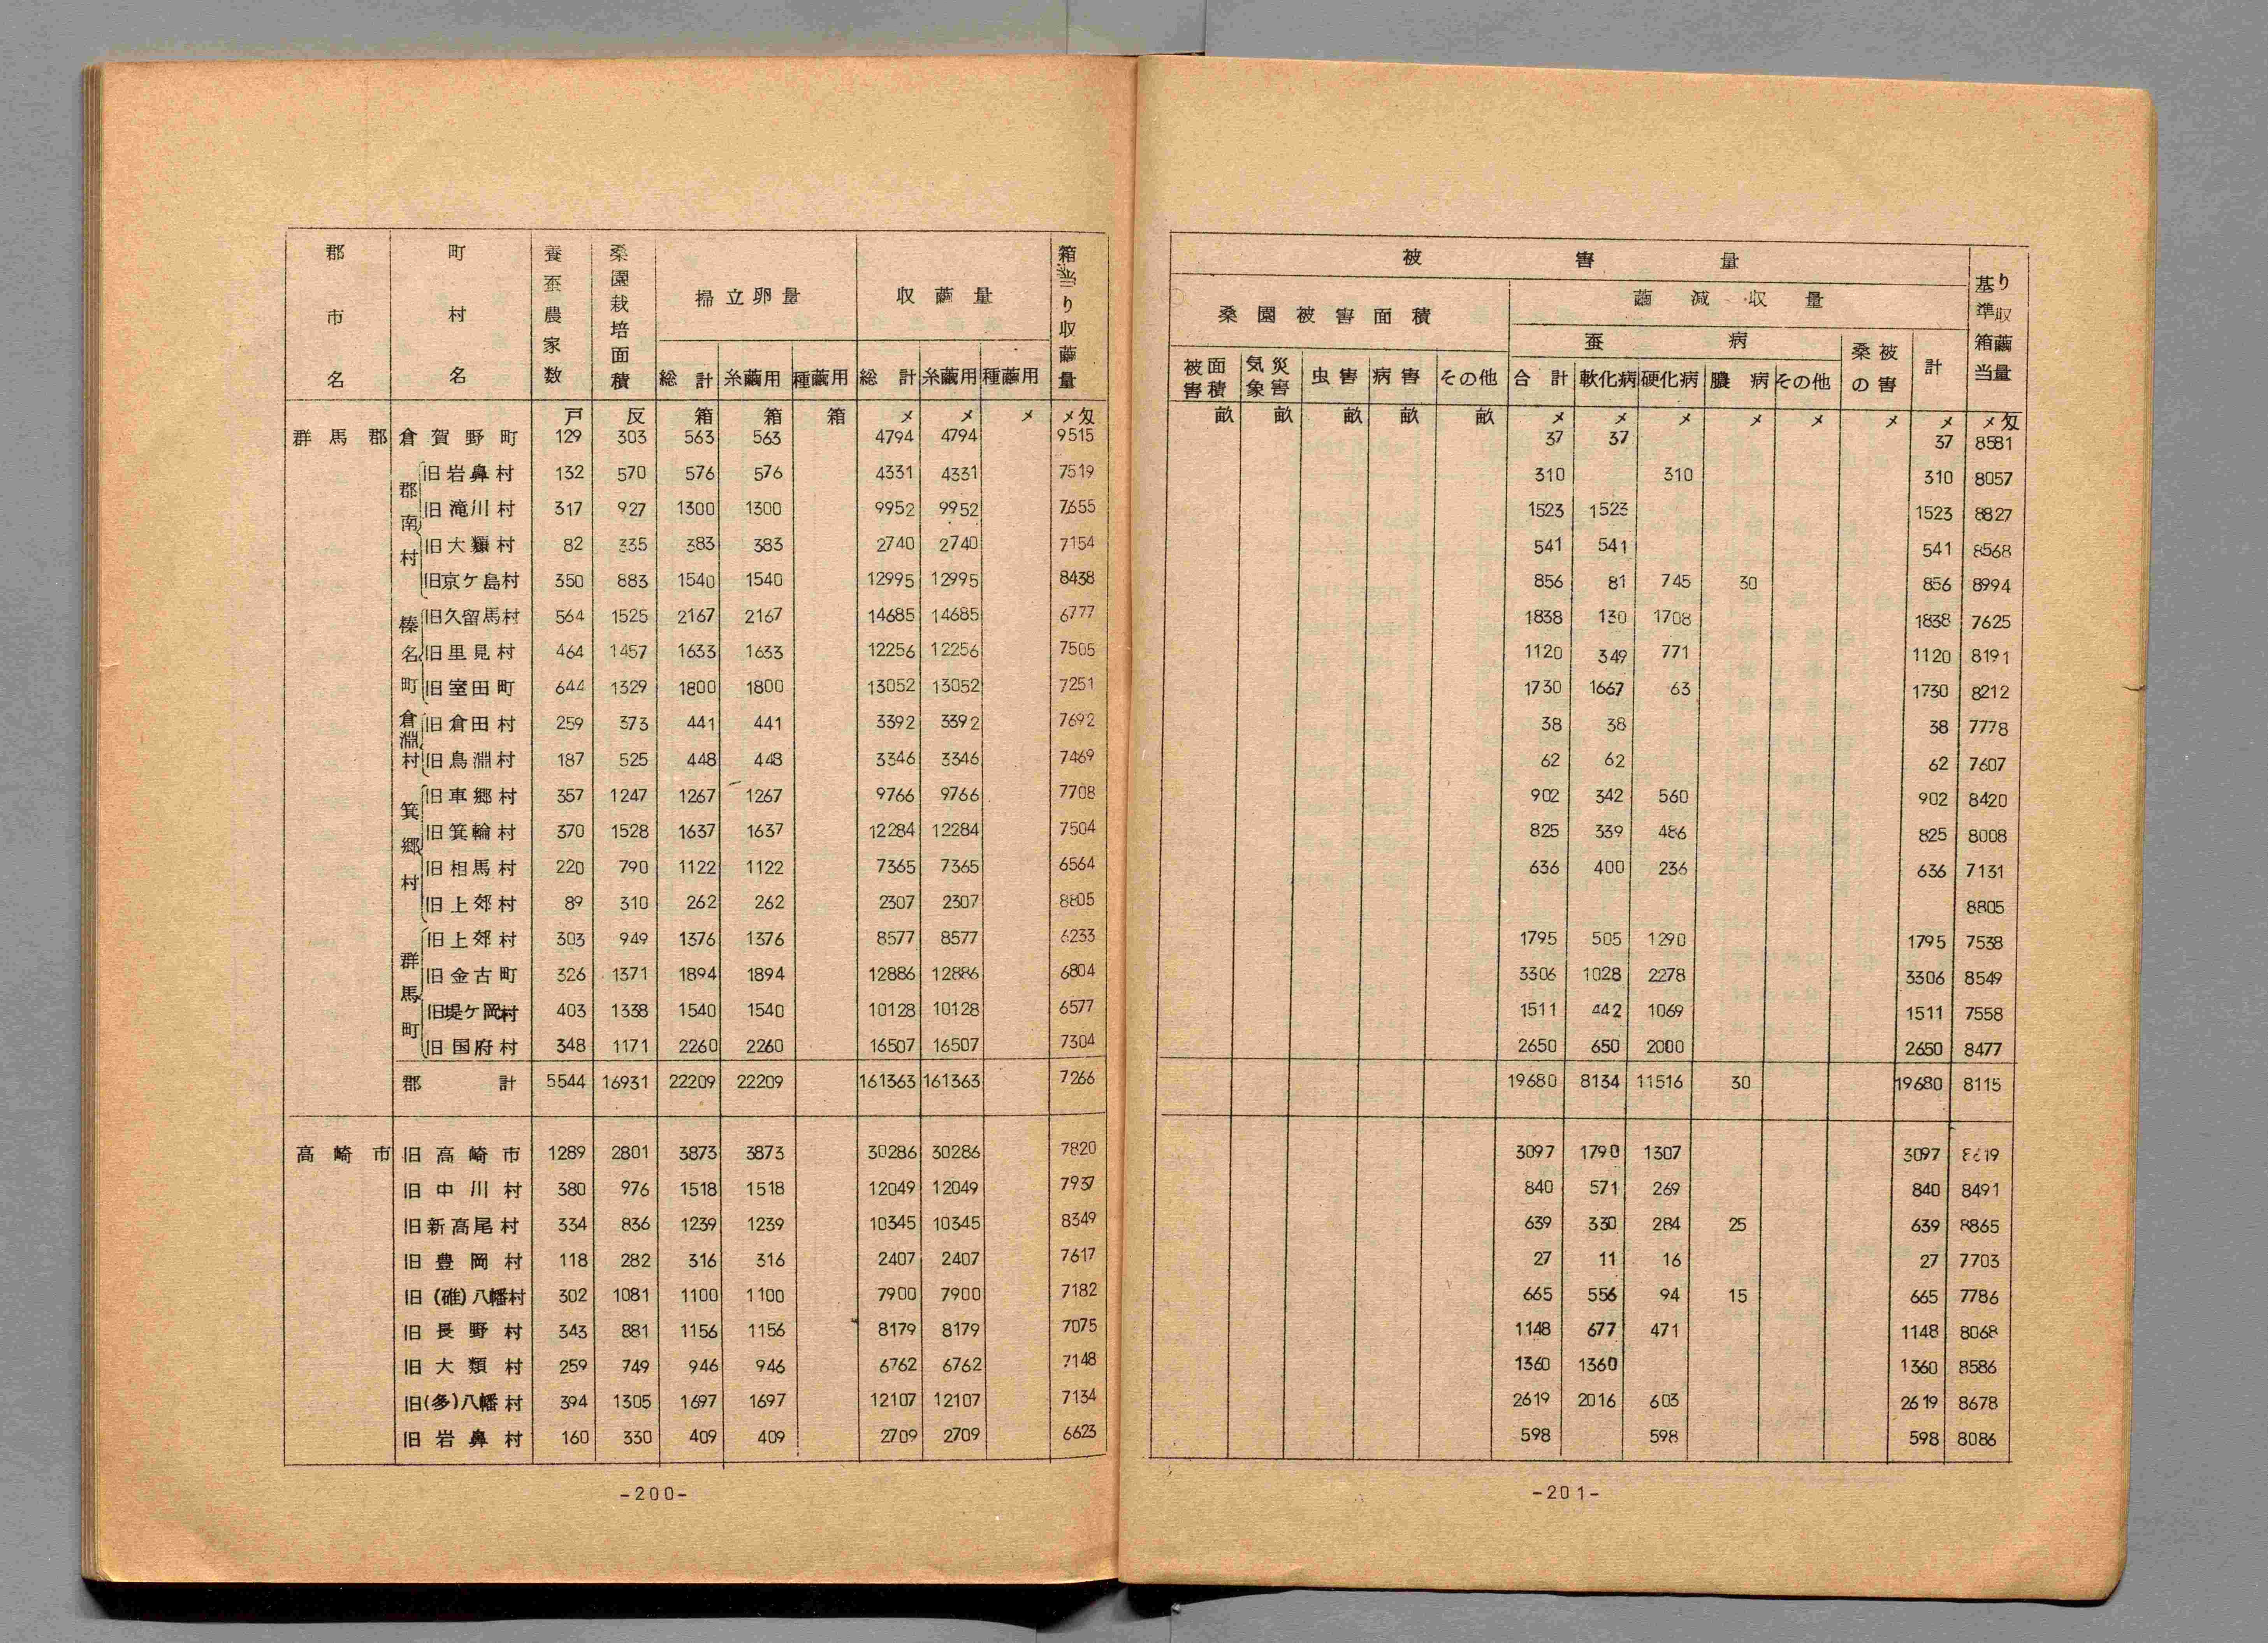 郡市名 町村名 養蚕農家数 桑園栽培面積 掃立卵量 収繭量 箱当り収繭量
総計 糸繭用 種繭用 総計 糸繭用 種繭用
戸 反 箱 箱 箱 メ メ メ メ匁
群馬郡 倉賀野町 129 303 563 563 4794 4794 9515
郡南村 旧岩鼻村 132 570 576 576 4331 4331 7519
旧滝川村 317 927 1300 1300 9952 9952 7655
旧大類村 82 335 383 383 2740 2740 7154
旧京ケ島村 350 883 1540 1540 12995 12995 8438
榛名町 旧久留馬村 564 1525 2167 2167 14685 14685 6777
旧里見村 464 1457 1633 1633 12256 12256 7505
旧室田町 644 1329 1800 1800 13052 13052 7251
倉淵村 旧倉田村 259 373 441 441 3392 3392 7692
旧鳥淵村 187 525 448 448 3346 3346 7469
箕郷村 旧車郷村 357 1247 1267 1267 9766 9766 7708
旧箕輪村 370 1528 1637 1637 12284 12284 7504
旧相馬村 220 790 1122 1122 7365 7365 6564
旧上郊村 89 310 262 262 2307 2307 8805
群馬町 旧上郊村 303 949 1376 1376 8577 8577 6233
旧金古町 326 1371 1894 1894 12886 12886 6804
旧堤ケ岡村 403 1338 1540 1540 10128 10128 6577
旧国府村 348 1171 2260 2260 16507 16507 7304
郡計 5544 16931 22209 22209 161363 161363 7266
高崎市 旧高崎市 1289 2801 3873 3873 30286 30286 7820
旧中川村 380 976 1518 1518 12049 12049 7937
旧新高尾村 334 836 1239 1239 10345 10345 8349
旧豊岡村 118 282 316 316 2407 2407 7617
旧(碓)八幡村 302 1081 1100 1100 7900 7900 7182
旧長野村 343 881 1156 1156 8179 8179 7075
旧大類村 259 749 946 946 6762 6762 7148
旧(多)八幡村 394 1305 1697 1697 12107 12107 7134
旧岩鼻村 160 330 409 409 2709 2709 6623
-200-
被害量 基準箱当り収繭量
桑園被害面積 繭減収量
蚕病 桑の被害 計
被害面積 気象災害 虫害 病害 その他 合計 軟化病 硬化病 膿病 その他
畝 畝 畝 畝 畝 メ メ メ メ メ メ メ メ匁
37 37 37 8581
310 310 310 8057
1523 1523 1523 8827
541 541 541 8568
856 81 745 30 856 8994
1838 130 1708 1838 7625
1120 349 771 1120 8191
1730 1667 63 1730 8212
38 38 38 7778
62 62 62 7607
902 342 560 902 8420
825 339 486 825 8008
636 400 236 636 7131
8805
1795 505 1290 1795 7538
3306 1028 2278 3306 8549
1511 442 1069 1511 7558
2650 650 2000 2650 8477
19680 8134 11516 30 19680 8115
3097 1790 1307 3097
840 571 269 840 8491
639 330 284 25 639 8865
27 11 16 27 7703
665 556 94 15 665 7786
1148 677 471 1148 8068
1360 1360 1360 8586
2619 2016 603 2619 8678
598 598 598 8086
-201-